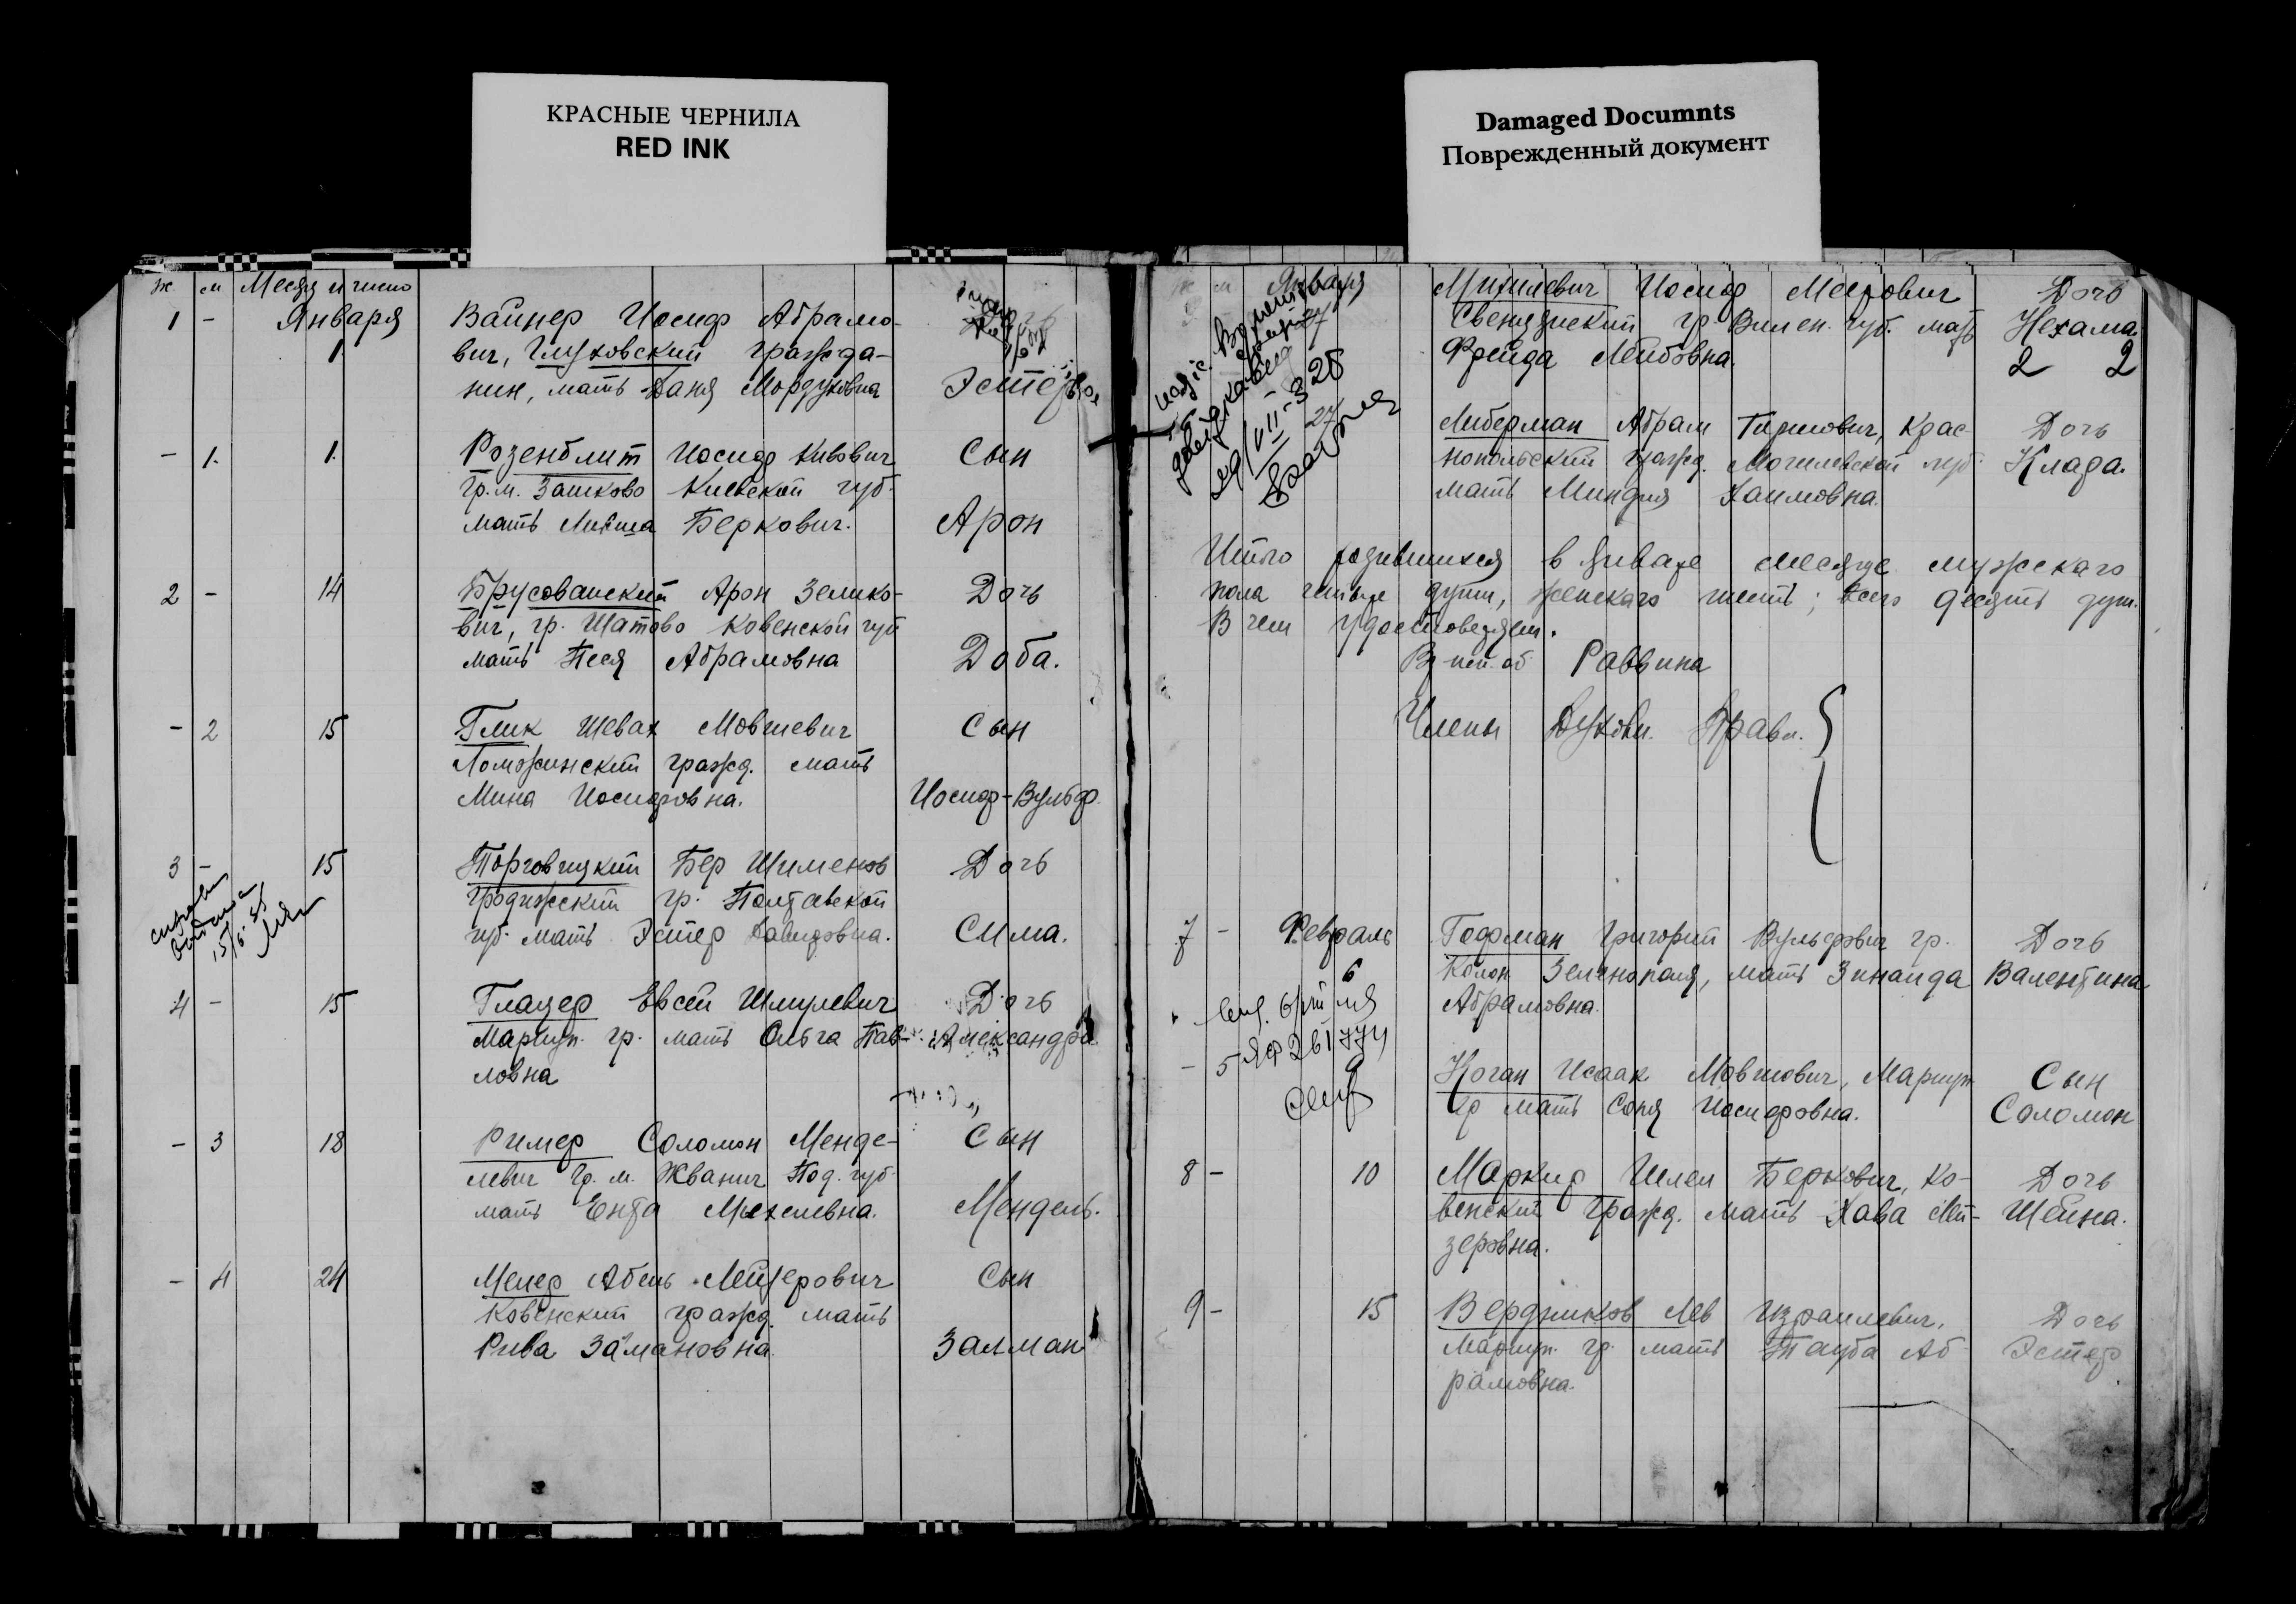 КРАСНЫЕ ЧЕРНИЛА
RED INK
Damaged Documnts
Поврежденный документ
ж м Месяц и число
1 - Января Вайнер Иосиф Абрамо-
1 вич, Глуховский гражда-
нин, мать Даня Мордуховна Эстер
- 1. 1. Розенблит Иосиф Кивович Сын
гр. м. Зашково Киевской губ.
мать Лива Беркович. Арон
2 - 14 Брусованский Арон Зелико- Дочь
вич, гр. Шатово Ковенской губ
мать Песя Абрамовна Доба.
- 2 15 Глик Шевах Мовшевич Сын
Ломжинский гражд. мать
Мина Иосифовна. Иосиф-Вульф.
3 - 15 Торговицкий Бер Шименов Дочь
гр. Полтавской
губ. мать Эстер Давидовна. Сима.
4 - 15 Глазер Евсей Шмулевич Дочь
Мариуп. гр. мать Ольга Пав- Александра
ловна
- 3 18 Ример Соломон Менде- Сын
левич гр. м. Жванич Под. губ.
мать Ента Михелевна. Мендель.
- 4 24 Мелер Абель Лейзерович Сын
Ковенский гражд. мать
Рива Залмановна. Залман
ж м Января Михилевич Иосиф Меерович Дочь
Свенцянский гр. Вилен. губ. мать Нехама.
Фрейда Лейбовна. 2 2
27 Либерман Абрам Гиршович, Крас- Дочь
нопольский гражд. Могилевской губ. Клара.
мать Миндля Хаимовна.
Итого родившихся в январе месяце мужскаго
пола четыре души, женскаго шесть; всего десять душ.
В чем удостоверяем.
Раввина
Члены Духовн. Правл.
7 - Февраль Гофман Григорий Вульфович гр. Дочь
6 Колон. Зеленополя, мать Зинаида Валентина
Абрамовна.
- 5 9 Коган Исаак Мовшович, Мариуп. Сын
гр мать Соня Иосифовна. Соломон
8 - 10 Маркир Шлем Беркович, Ко- Дочь
венский гражд. мать Хава Лей- Шейна.
зеровна.
9 - 15 Бердников Лев Израилевич, Дочь
Мариуп. гр. мать Тауба Аб- Эстер
рамовна.